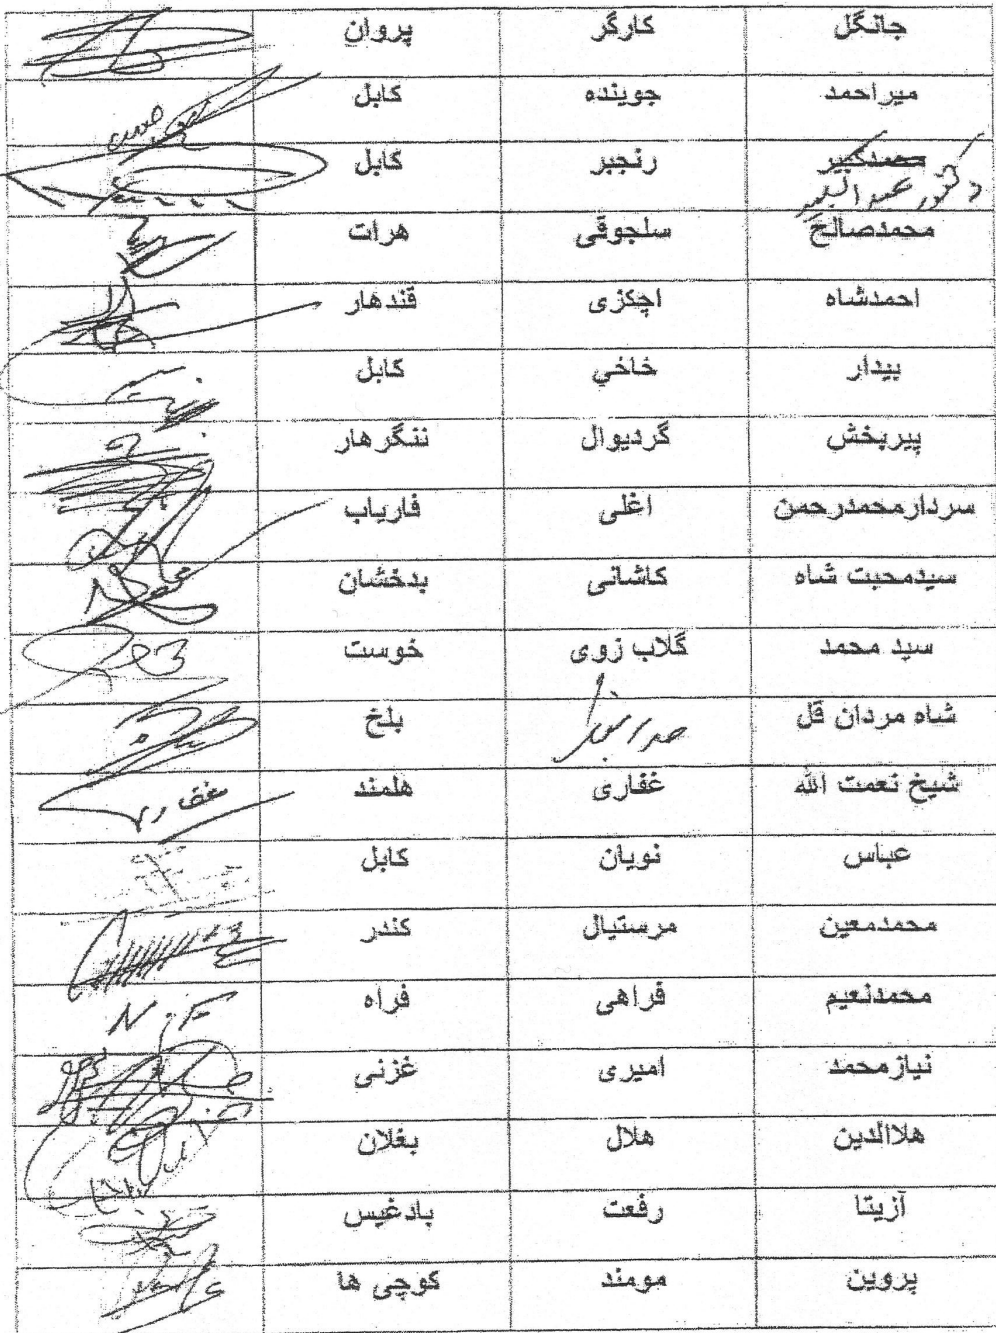 جانگل کارگر پروان
میراحمد جوینده کابل
محمدکبیر رنجبر کابل
دکتور عبدالکبیر
محمدصالح سلجوقی هرات
احمدشاه اچکزی قندهار
بیدار خاخي کابل
پیربخش گردیوال ننگرهار
سردارمحمدرحمن اغلی فاریاب
سیدمحبت شاه کاشانی بدخشان
سید محمد گلاب زوی خوست
شاه مردان قل بلخ
شیخ نعمت الله غفاری هلمند
عباس نویان کابل
محمدمعین مرستیال کندر
محمدنعیم فراهی فراه N.F
نیازمحمد امیری غزنی
هلاالدین هلال بغلان
آزیتا رفعت بادغیس
پروین مومند کوچی ها